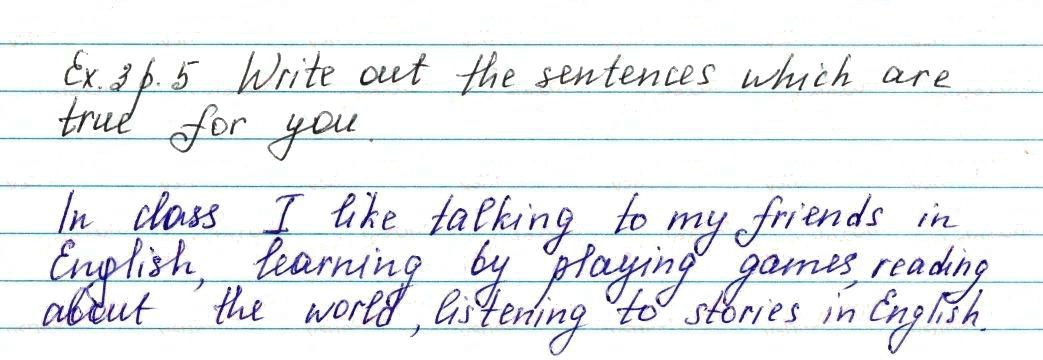 Ex. 3 p. 5 Write out the sentences which are
true for you.
In class I like talking to my friends in
English, learning by playing games, reading
about the world, listening to stories in English.